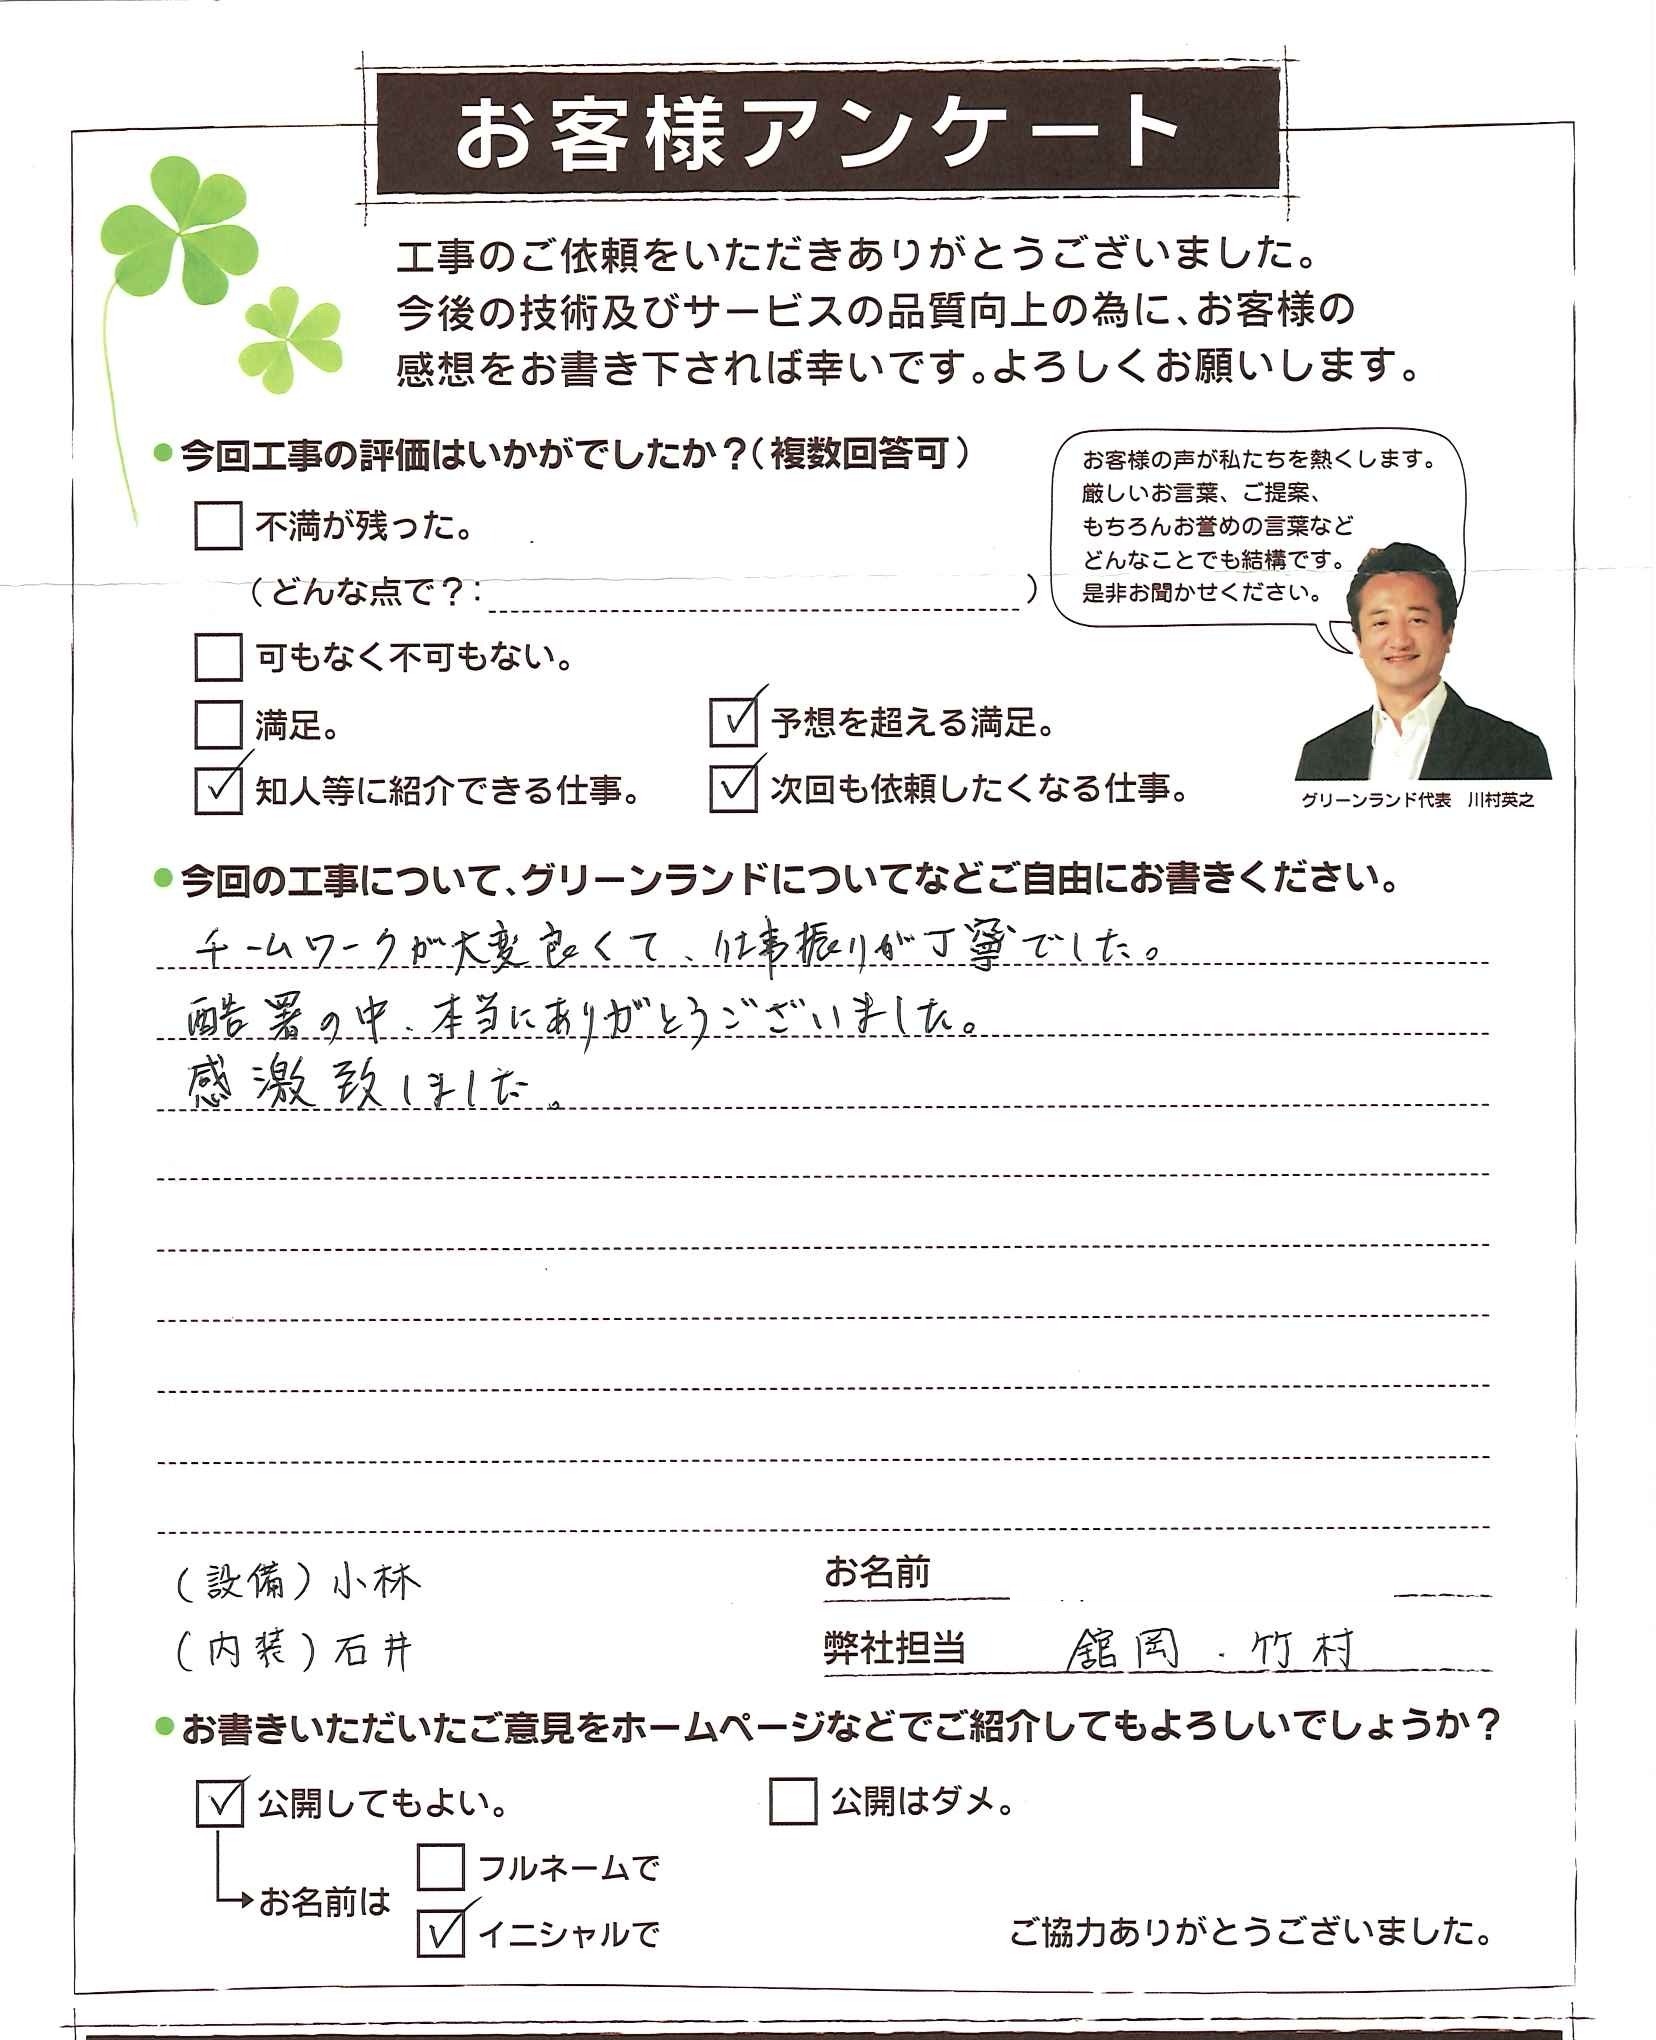 お客様アンケート
工事のご依頼をいただきありがとうございました。
今後の技術及びサービスの品質向上の為に、お客様の
感想をお書き下されば幸いです。よろしくお願いします。
●今回工事の評価はいかがでしたか？（複数回答可）
お客様の声が私たちを熱くします。
厳しいお言葉、ご提案、
もちろんお誉めの言葉など
どんなことでも結構です。
是非お聞かせください。
グリーンランド代表　川村英之
□ 不満が残った。
（どんな点で？：　）
□ 可もなく不可もない。
□ 満足。　☑ 予想を超える満足。
☑ 知人等に紹介できる仕事。　☑ 次回も依頼したくなる仕事。
●今回の工事について、グリーンランドについてなどご自由にお書きください。
チームワークが大変良くて、仕事振りが丁寧でした。
酷署の中、本当にありがとうございました。
感激致しました。
（設備）小林　お名前
（内装）石井　弊社担当　舘岡．竹村
●お書きいただいたご意見をホームページなどでご紹介してもよろしいでしょうか？
☑ 公開してもよい。　□ 公開はダメ。
お名前は　□ フルネームで
☑ イニシャルで
ご協力ありがとうございました。